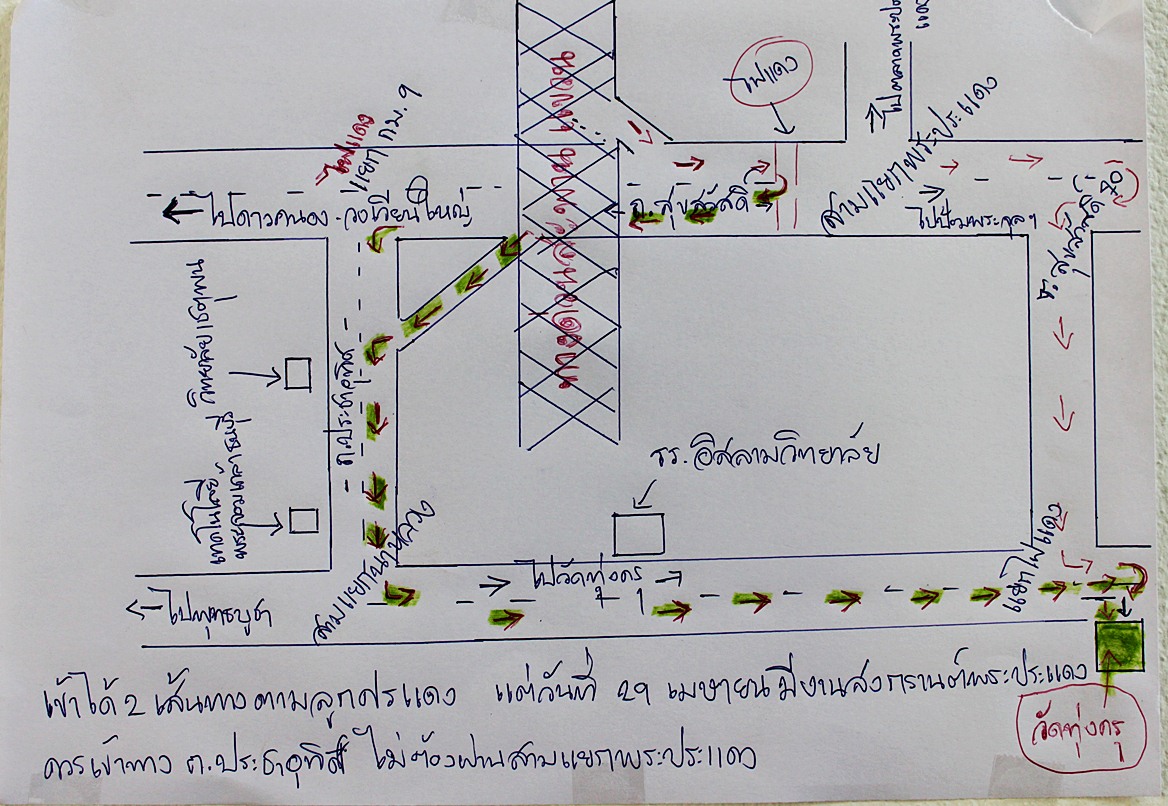 ไปตลาดพระประแดง
ไฟแดง
ไฟแดง
แยก กม. 9
ไปดาวคนอง - วงเวียนใหญ่
ถ.สุขสวัสดิ์
สามแยกพระประแดง
ไปป้อมพระจุลฯ
ซ.สุขสวัสดิ์ 70
วิทยาลัย
ถ.ประชาอุทิศ
เทคโนโลยี
รร. อิสลามวิทยาลัย
สามแยกนาหลวง
ไปวัดทุ่งครุ
ไปพุทธบูชา
เข้าได้ 2 เส้นทางตามลูกศรแดง แต่วันที่ 29 เมษายน มีงานสงกรานต์พระประแดง
ควรเข้าทาง ถ.ประชาอุทิศ ไม่ต้องผ่านสามแยกพระประแดง
วัดทุ่งครุ